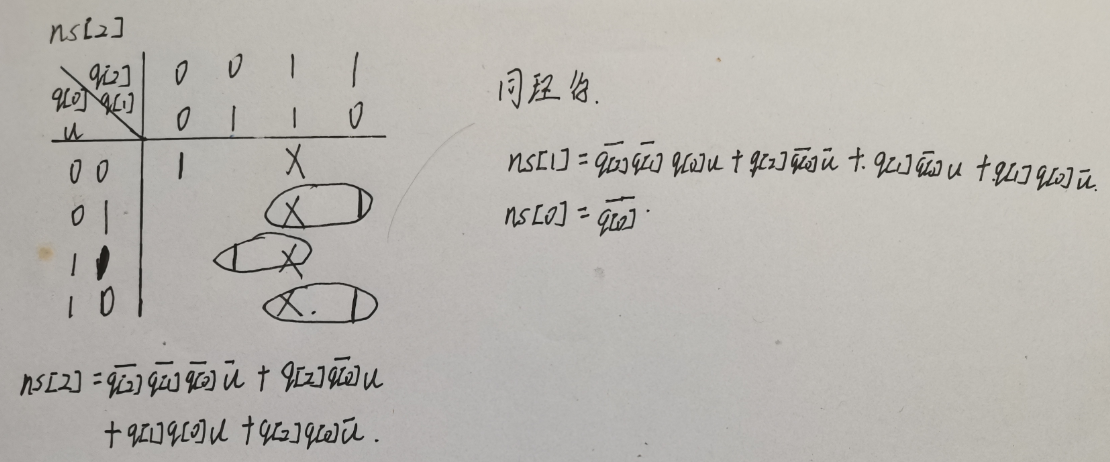 ns[2]
q[2] 0 0 1 1
q[0] q[1] 0 1 1 0
u
0 0 1 X
0 1 X 1
1 1 1 X
1 0 X 1
ns[2] = q̅[̅2̅]̅ q̅[̅1̅]̅ q̅[̅0̅]̅ u̅ + q[2] q̅[̅0̅]̅ u
+ q[1] q[0] u + q[2] q[0] u̅.
同理得.
ns[1] = q̅[̅2̅]̅ q̅[̅1̅]̅ q[0] u + q[2] q̅[̅0̅]̅ u̅ + q[1] q̅[̅0̅]̅ u + q[1] q[0] u̅.
ns[0] = q̅[̅0̅]̅.